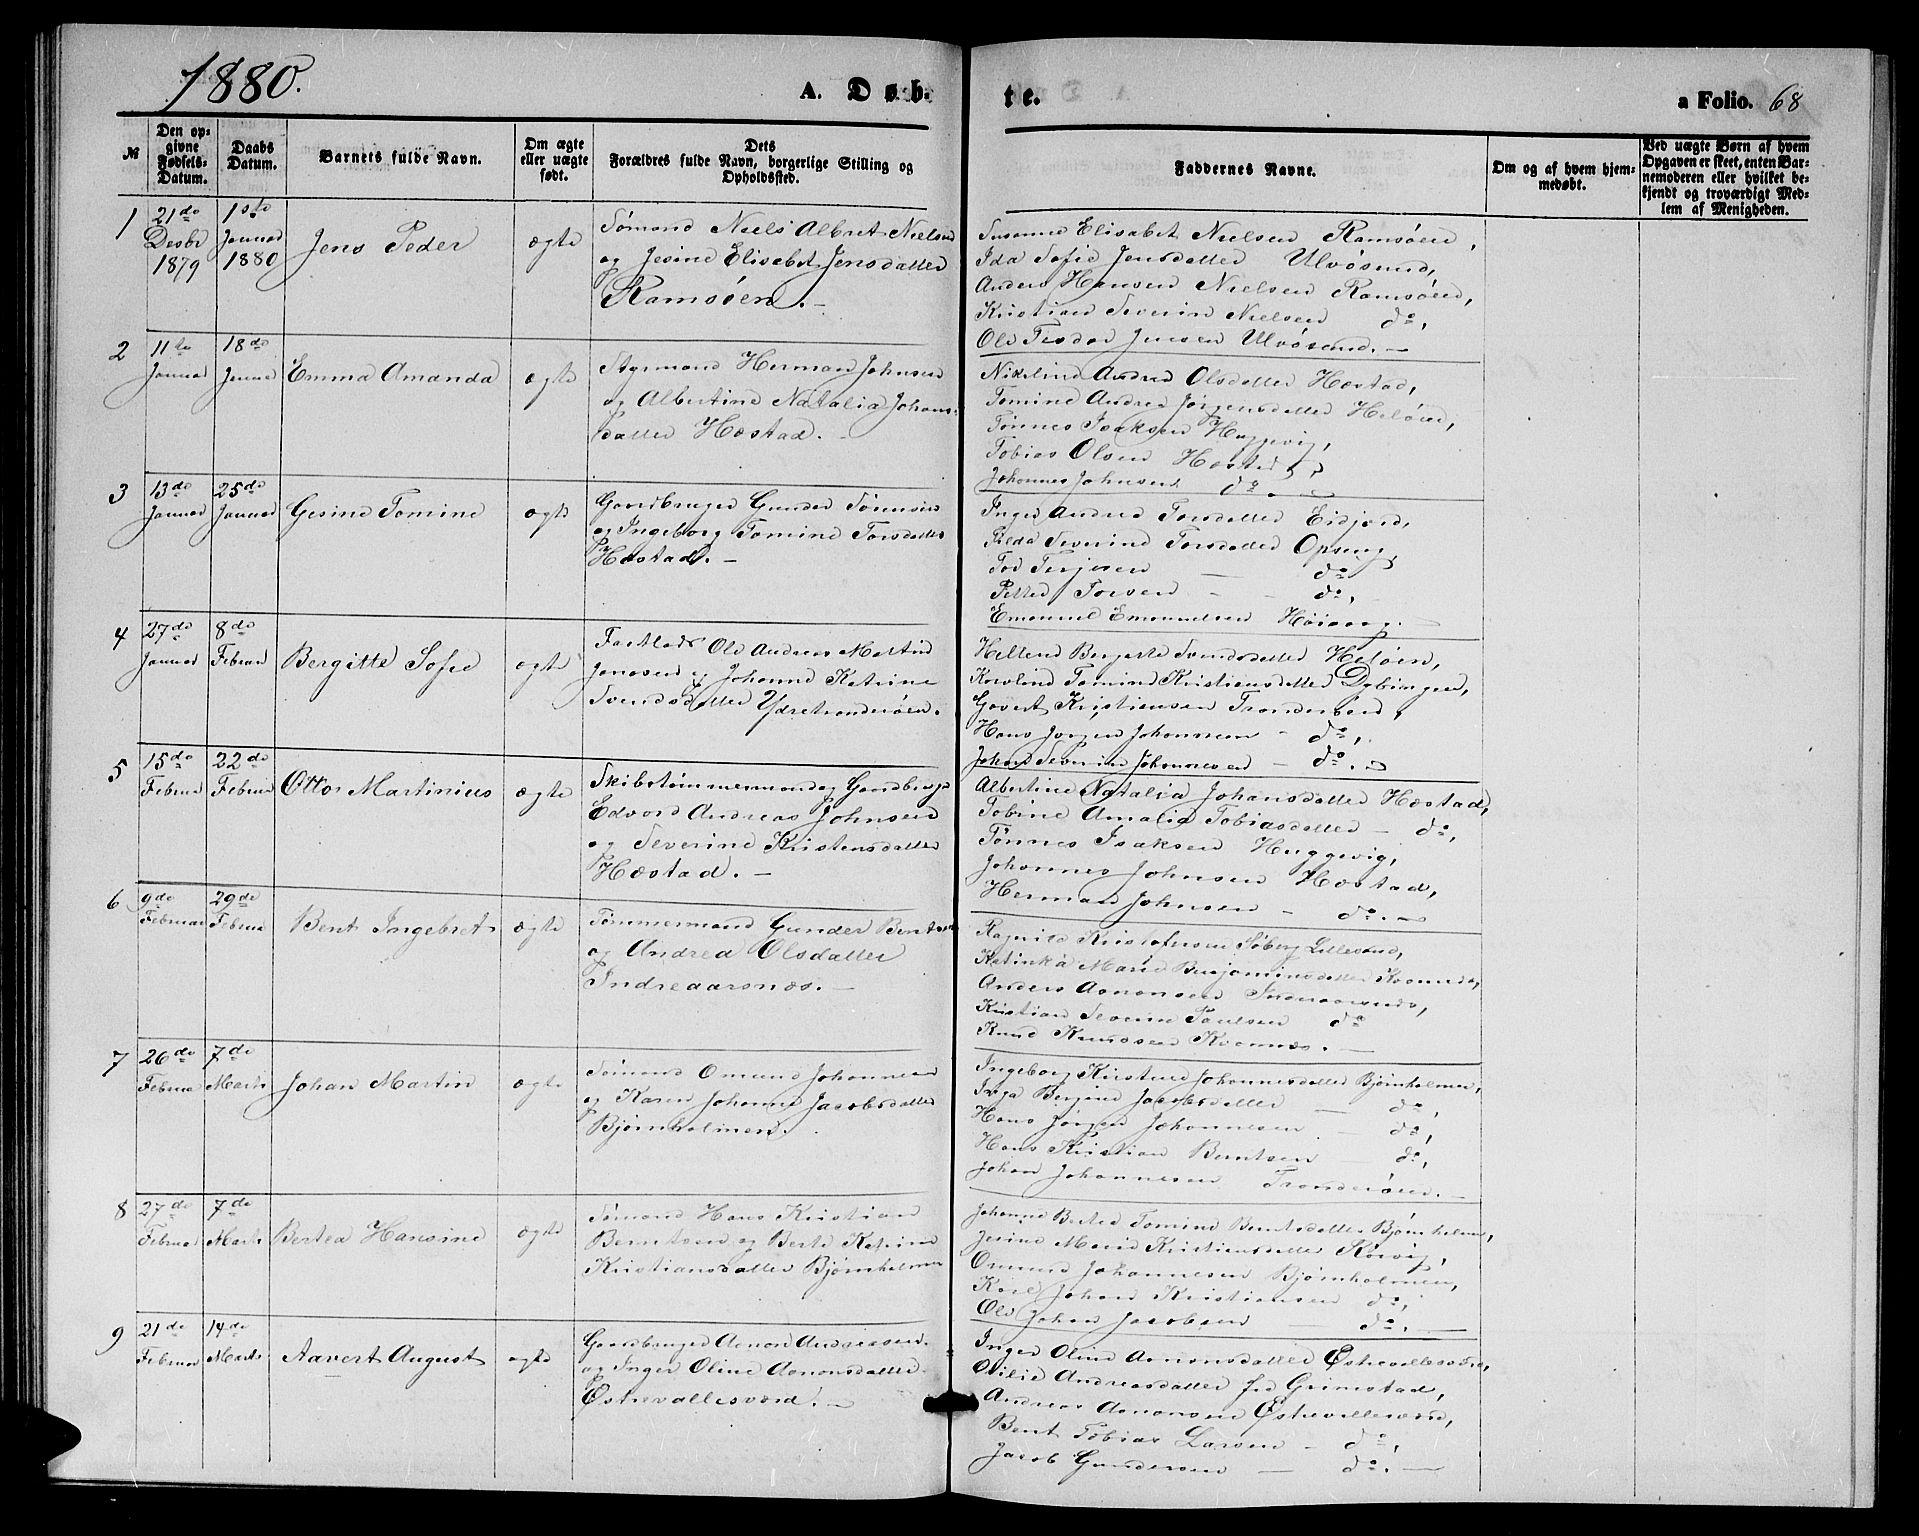 1880.
A. Døb-
te.
a Folio. 68
№
Den op-
givne
Fødsels-
Datum.
Daabs
Datum.
Barnets fulde Navn.
Om ægte
eller uægte
født.
Dets
Forældres fulde Navn, borgerlige Stilling og
Opholdssted.
Faddernes Navne.
Om og af hvem hjem-
medøbt.
Ved uægte Børn af hvem
Opgaven er skeet, enten Bar-
nemoderen eller hvilket be-
kjendt og troværdigt Med-
lem af Menigheden.
1
21de
Desbr
1879
1ste
Januar
1880
Jens Peder
ægte
Sømand Niels Albret Nielsen
og Jesine Elisabet Jensdatter
Ramsøen. -
Susanne Elisabet Nielsen Ramsøen,
Ida Sofie Jensdatter Ulvøsund,
Anders Hansen Nielsen Ramsøen,
Kristian Severin Nielsen do,
Ole Jensen Ulvøsund. -
2
11te
Januar
18de
Januar
Emma Amanda
ægte
Styrmand Herman Johnsen
og Albertine Natalia Johans-
datter Hæstad. -
Nikeline Andrea Olsdatter Hæstad,
Tomine Andrea Jørgensdatter Heløen,
Tønnes Isaksen Huggevig,
Tobias Olsen Hæstad,
Johannes Johnsen do. -
3
13de
Januar
25de
Januar
Gesine Tomine
ægte
Gaardbruger Gunder Sørensen
og Ingeborg Tomine Torsdatter
Hæstad. -
Inger Andrea Torsdatter Eidjord,
Severine Torsdatter Opsung,
Tor Terjesen - do
Petter Torsen - do,
Emanuel Emanuelsen
4
27de
Januar
8de
Februar
Bergitte Sofie
ægte
Ole Andreas Martin
Jensen og Johanne Katrine
Svendsdatter Ydretronderøen.
Hellene Bergitte Svendsdatter Heløen,
Tomine Kristiensdatter Dybingen,
Govert Kristiensen
Hans Jørgen Johannesen - do,
Johan Severin Johannesen - do. -
5
15de
Februar
22de
Februar
Otto Martinius
ægte
Skibstømmermand og Gaardbruger
Edvard Andreas Johnsen
og Severine Kristensdatter
Hæstad. -
Albertine Natalia Johansdatter Hæstad,
Tobine Amalia Tobiasdatter - do,
Tønnes Isaksen Huggevig,
Johannes Johnsen Hæstad,
Herman Johnsen - do. -
6
9de
Februar
29de
Februar
Bent Ingebret
ægte
Tømmermand Gunder Bentsen
og Andrea Olsdatter
Indreaarsnæs. -
Ragnild Kristofersen Søberg Lillesand,
Katinka Marie Benjaminsdatter Kvannæs,
Anders Aanonsen Indreaarsnæs,
Kristian Severin Paulsen do
Knud Knudsen Kvannæs. -
7
26de
Februar
7de
Marts
Johan Martin
ægte
Sømand Omund Johannesen
og Karen Johanne Jacobsdatter
Bjørnholmen.
Ingeborg Kirstine Johannesdatter Bjørnholmen,
Inga Bergine Jacobsdatter - do,
Hans Jørgen Johannesen - do,
Hans Kristian Berntsen - do,
Johan Johannesen Tronderøen. -
8
27de
Februar
7de
Marts
Bertea Hansine
ægte
Sømand Hans Kristian
Berntsen og Berte Katrine
Kristiansdatter Bjørnholmen
Johanne Bertea Tomine Berntsdatter Bjørnholmen,
Jesine Marie Kristiensdatter
Omund Johannesen Bjørnholmen,
Karl Johan Kristiansen do,
Ole Johan Jacobsen - do. -
9
21de
Februar
14de
Marts
Aavert August
ægte
Gaardbruger Aanon Andreassen
og Inger Oline Aanonsdatter
Østrevallesværd. -
Inger Oline Aanonsdatter Østrevallesværd,
Otilie Andreasdatter fra Grimstad,
Andreas Aanonsen Østrevallesværd,
Bent Tobias Larsen - do,
Jacob Gundersen - do. -